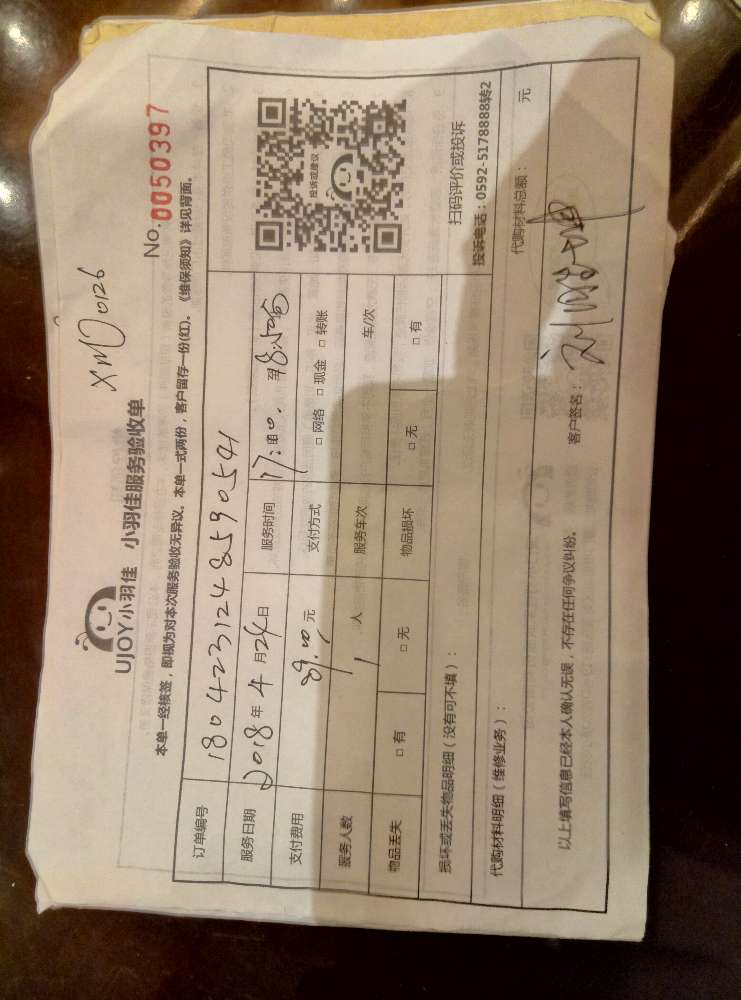 XMD0126
UJOY小羽佳 小羽佳服务验收单
No.0050397
本单一经核签，即视为对本次服务验收无异议。本单一式两份，客户留存一份(红)。《维保须知》详见背面。
订单编号 1804231248590541
服务日期 2018年4月24日 服务时间 17:00. 至18:50
支付费用 89.00元 支付方式 □网络 □现金 □转账
服务人数 1人 服务车次 车/次
物品丢失 □有 □无 物品损坏 □无 □有
投诉或建议
扫码评价或投诉
投诉电话：0592-5178888转2
损坏或丢失物品明细（没有可不填）：
代购材料明细（维修业务）： 代购材料总额： 元
以上填写信息已经本人确认无误，不存在任何争议纠纷。 客户签名：